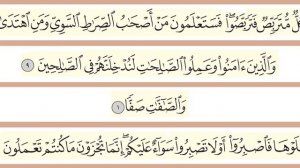 كُلٌّ مُّتَرَبِّصٌ فَتَرَبَّصُوا۟ فَسَتَعْلَمُونَ مَنْ أَصْحَـٰبُ ٱلصِّرَٰطِ ٱلسَّوِىِّ وَمَنِ ٱهْتَدَىٰ
وَٱلَّذِينَ ءَامَنُوا۟ وَعَمِلُوا۟ ٱلصَّـٰلِحَـٰتِ لَنُدْخِلَنَّهُمْ فِى ٱلصَّـٰلِحِينَ ٩
وَٱلصَّـٰٓفَّـٰتِ صَفًّا ١
فَٱصْبِرُوٓا۟ أَوْ لَا تَصْبِرُوا۟ سَوَآءٌ عَلَيْكُمْ ۖ إِنَّمَا تُجْزَوْنَ مَا كُنتُمْ تَعْمَلُونَ